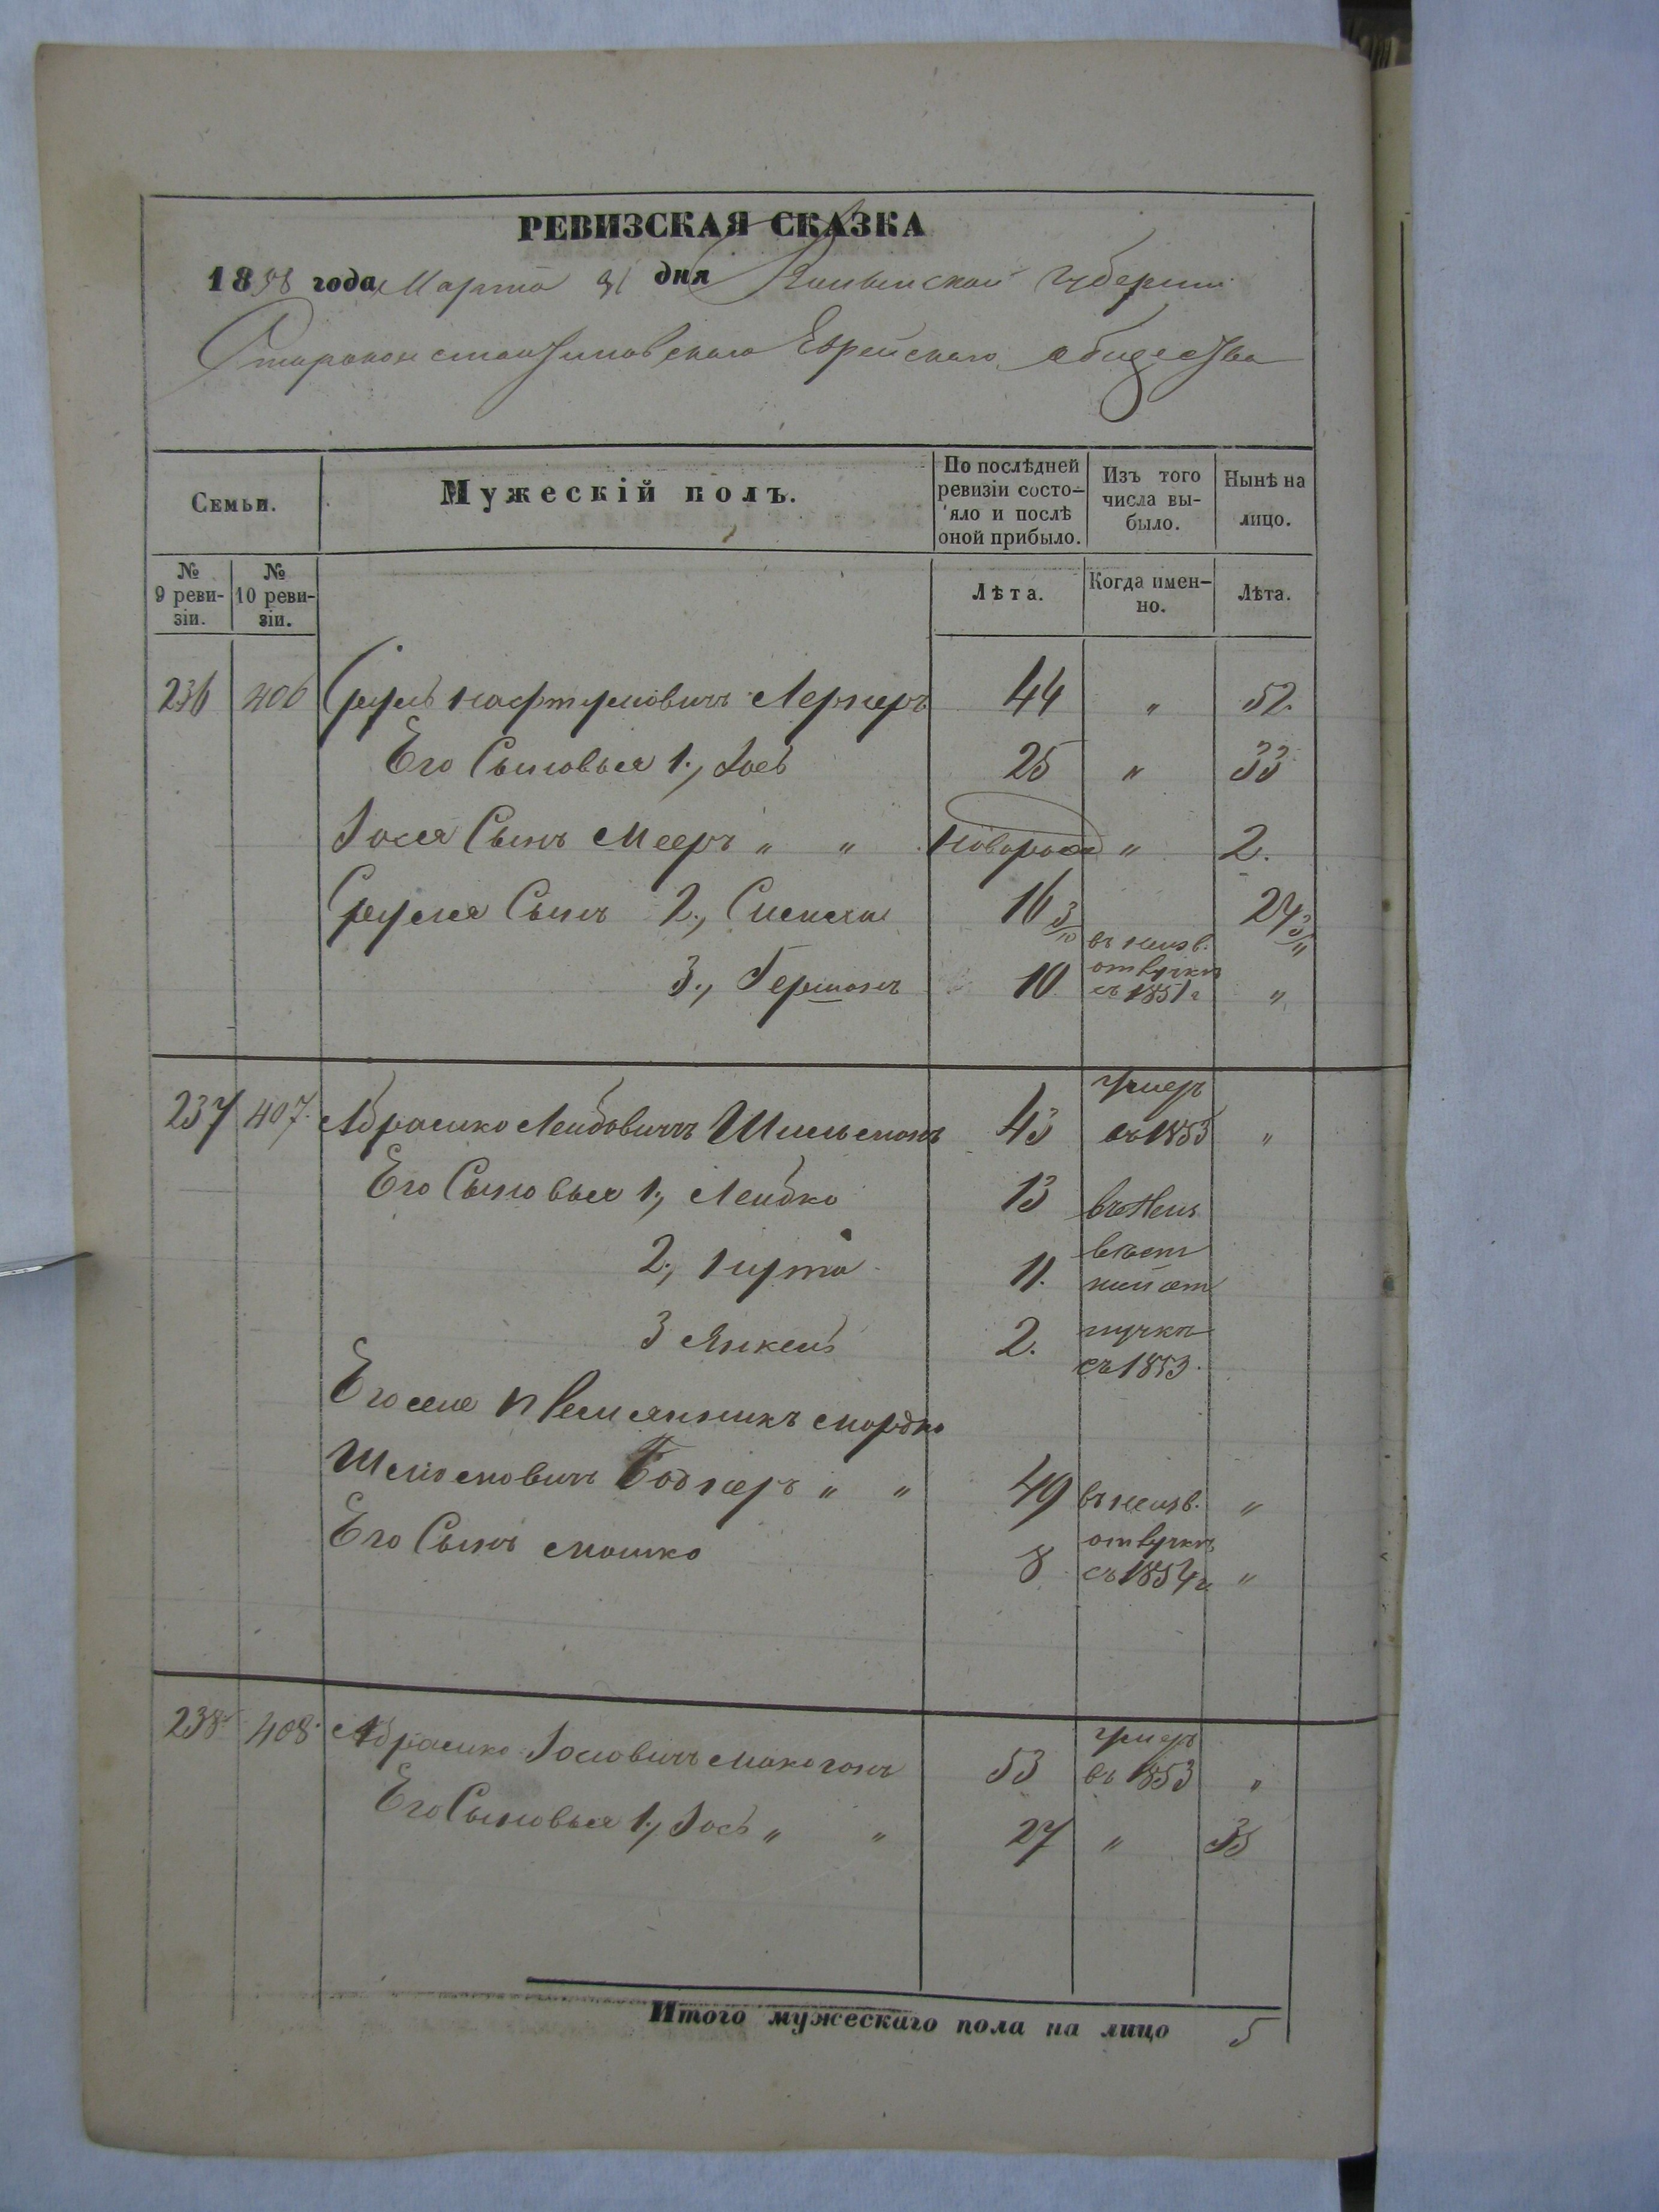 РЕВИЗСКАЯ СКАЗКА
1858 года Марта 31 дня Волынской Губернии
Староконстантиновскаго Еврейскаго общества
Семьи.
Мужескій полъ.
По послѣдней ревизіи состояло и послѣ оной прибыло.
Изъ того числа выбыло.
Нынѣ на лицо.
№ 9 ревизіи.
№ 10 ревизіи.
Лѣта.
Когда именно.
Лѣта.
236 406 Сруль Нафтуловичъ Лернеръ 44 " 52.
Его Сыновья 1., Іось 25 " 33
Іося Сынъ Мееръ " " новорож " 2.
Сруля Сынъ 2., 16 3/10 24 3/11
3., Гершонъ 10 въ неизв. отлучкѣ съ 1851 г "
237 407. Абрамко Лейбовичъ 43 умеръ въ 1853 "
Его Сыновья 1., Лейбко 13 въ Неиз
2., Нута 11. вѣст ной от
3 Янкель 2. лучкѣ съ 1853.
Его же Племянникъ Мордко
Шлiомовичъ Боднеръ " " 49 въ неизв. "
Его Сынъ Мошко 8 отлучкѣ съ 1854 г. "
238 408. Абрамко Іосіовичъ Макогонъ 53 умеръ въ 1853 "
Его Сыновья 1., Іось " " 27 " 35
Итого мужескаго пола на лицо 5